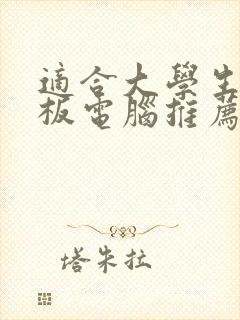 適合大學生
板電腦推薦
塔朱拉